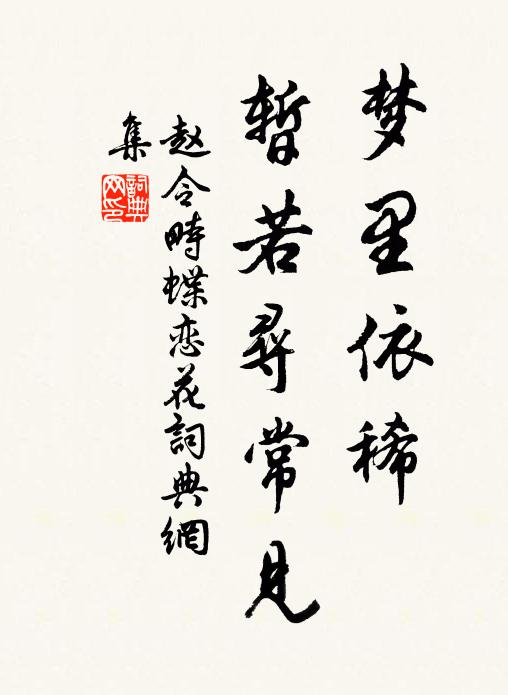 梦里依稀
暂若寻常见
赵令畤蝶恋花詞典網
集
詞典
网印